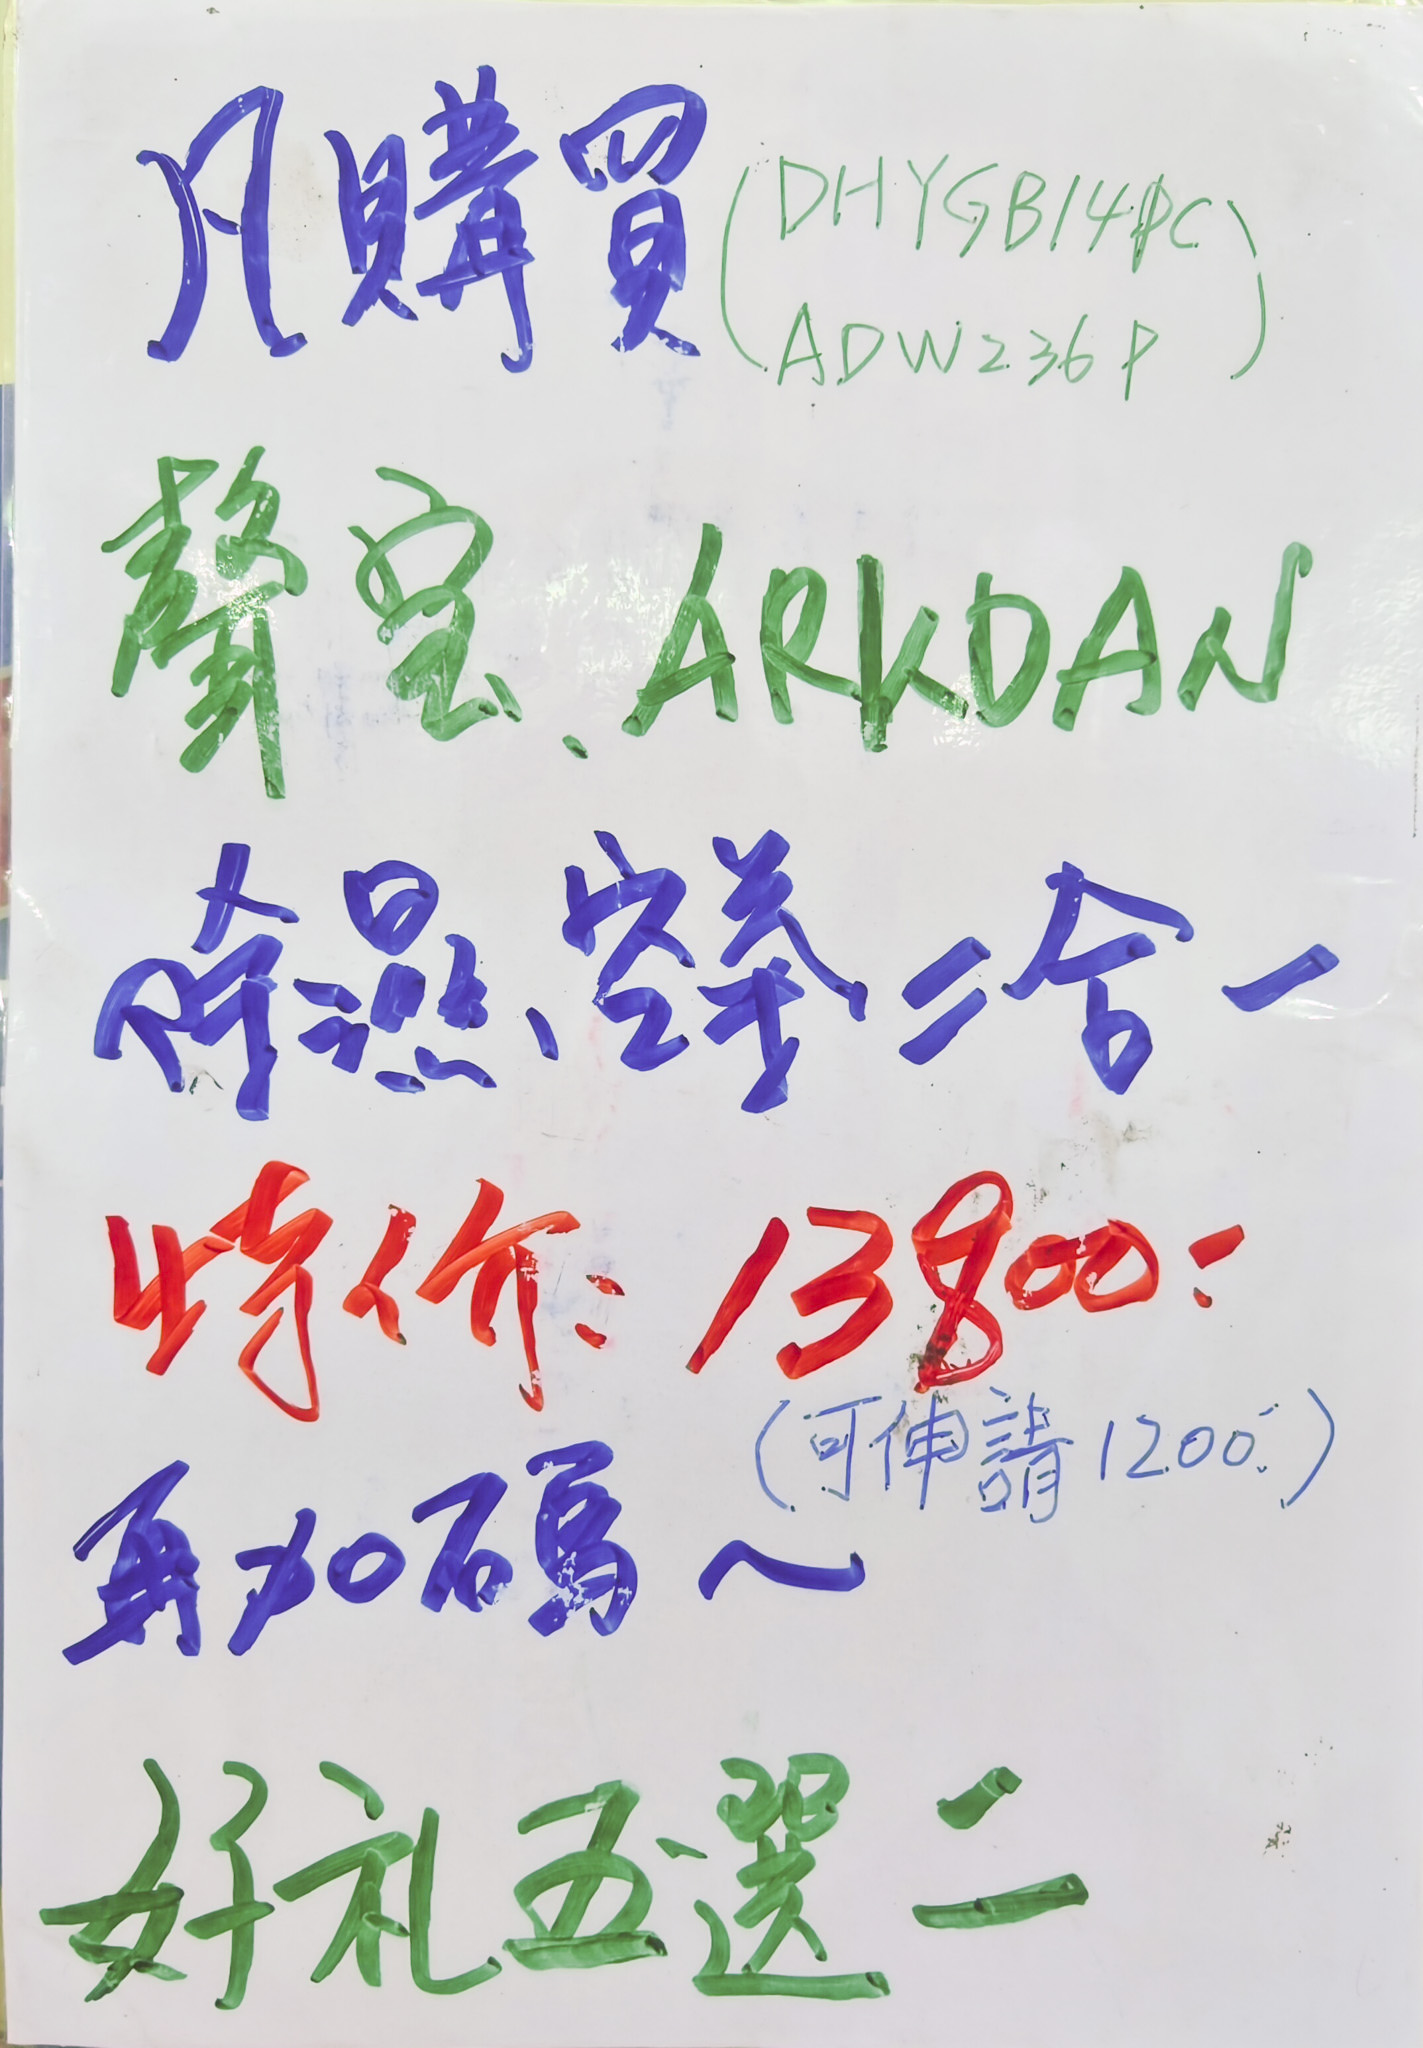 凡購買
(DHYGB14PC
ADW236P)
聲寶、ARKDAN
除濕、空清二合一
特价:13800:-
(可伸請1200:-)
再加碼~
好礼五選二